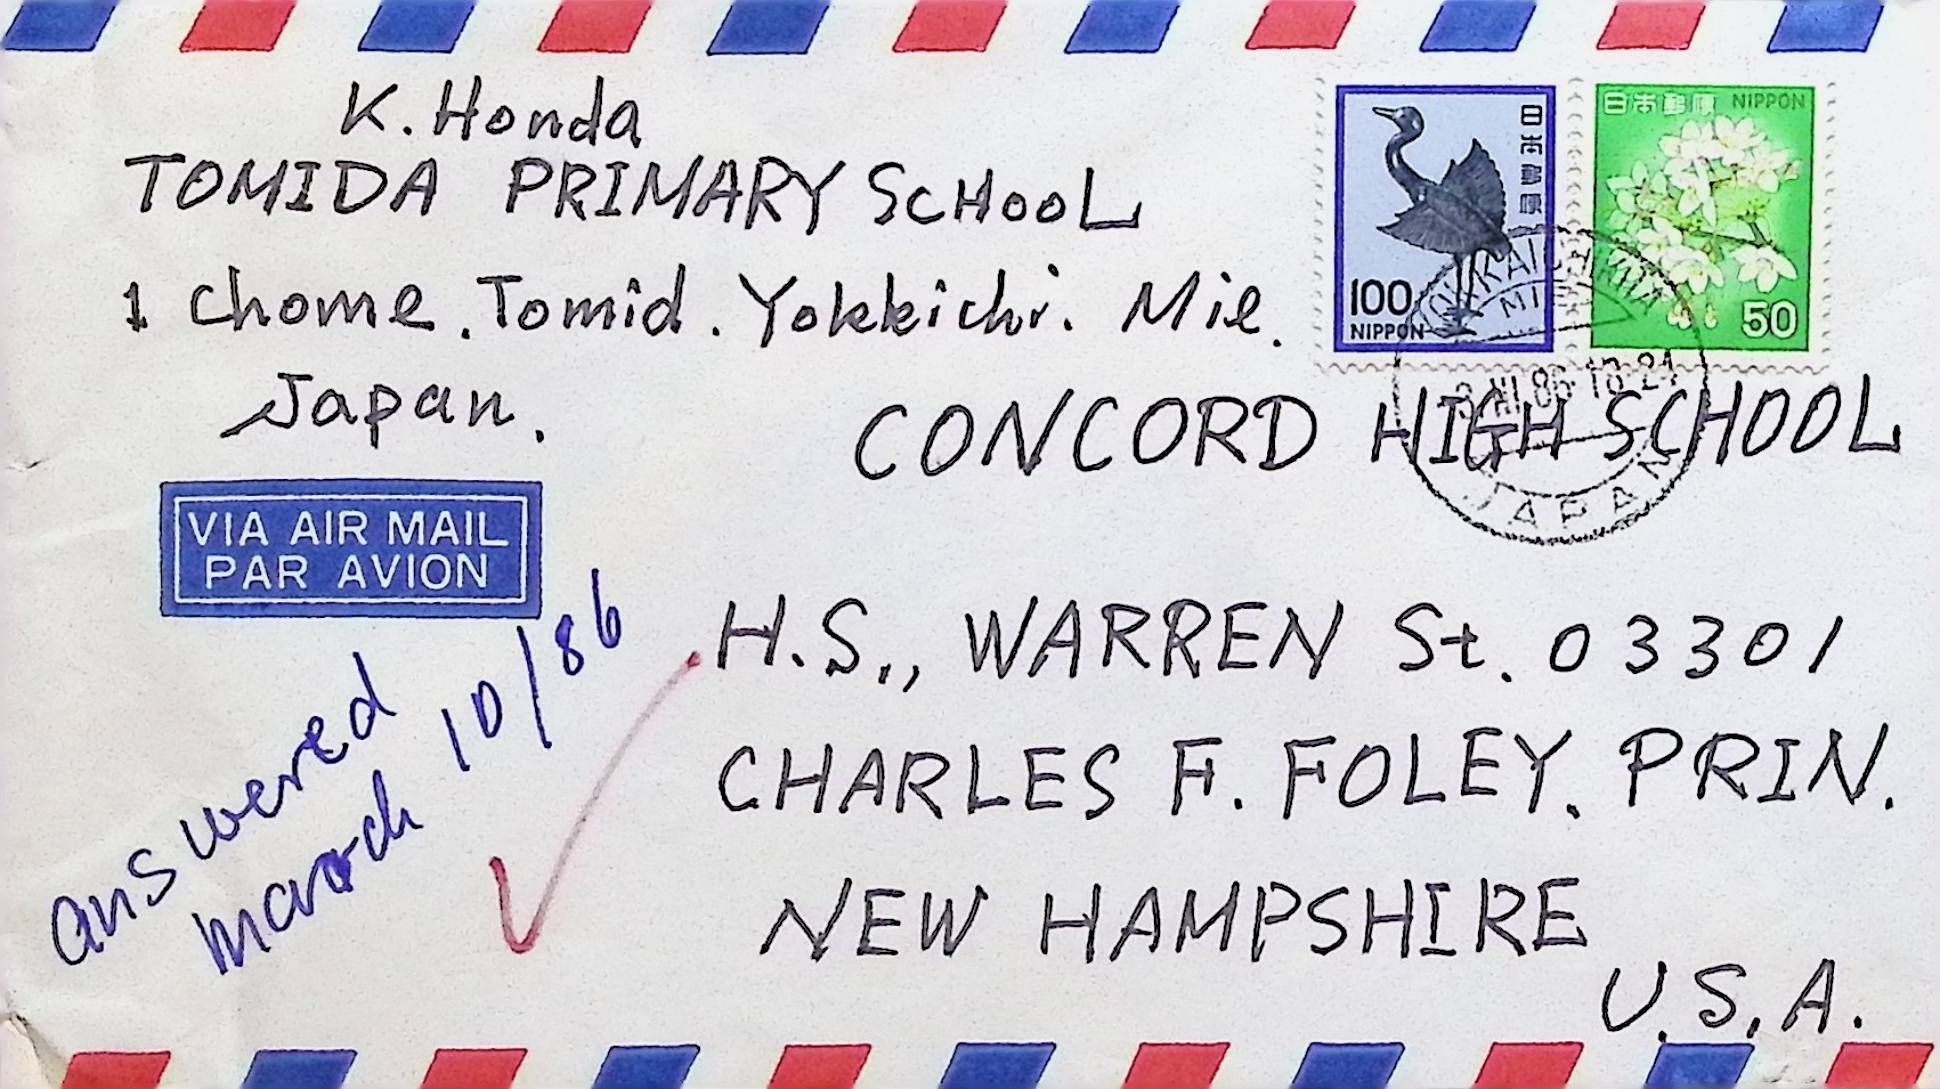 K. Honda
TOMIDA PRIMARY SCHOOL
1 Chome. Tomid. Yokkichi. Mie.
Japan.
日本郵便
100
NIPPON
日本郵便 NIPPON
50
MIE
JAPAN
CONCORD HIGH SCHOOL
VIA AIR MAIL
PAR AVION
H.S., WARREN St. 03301
CHARLES F. FOLEY, PRIN.
NEW HAMPSHIRE
U.S.A.
answered
march 10/86